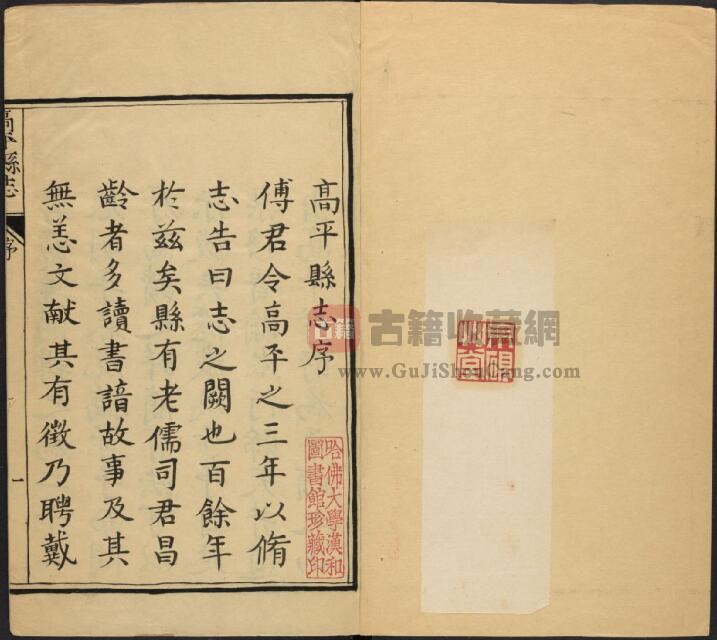 高平縣志序
傅君令高平之三年以脩
志告曰志之闕也百餘年
於茲矣縣有老儒司君昌
齡者多讀書諳故事及其
無恙文献其有徵乃聘戴
高平縣志
序
一
哈佛大學漢和
圖書館珍藏印
古籍
古籍收藏網
www.GuJiShouCang.com